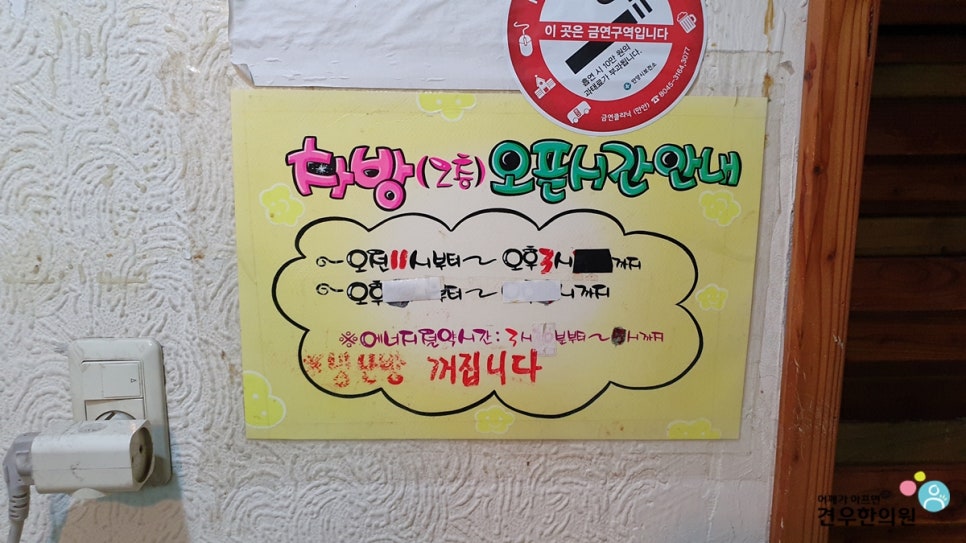 이 곳은 금연구역입니다
흡연 시 10만 원의
과태료가 부과됩니다.
안양시보건소
금연클리닉 (만안) ☎ 8045-3164,3077
차방(2층)오픈시간안내
오전11시부터~ 오후3시 까지
오후 부터~ 시까지
※에너지절약시간: 3시 부터~ 시까지
※냉난방 꺼집니다
어깨가 아프면
견우한의원